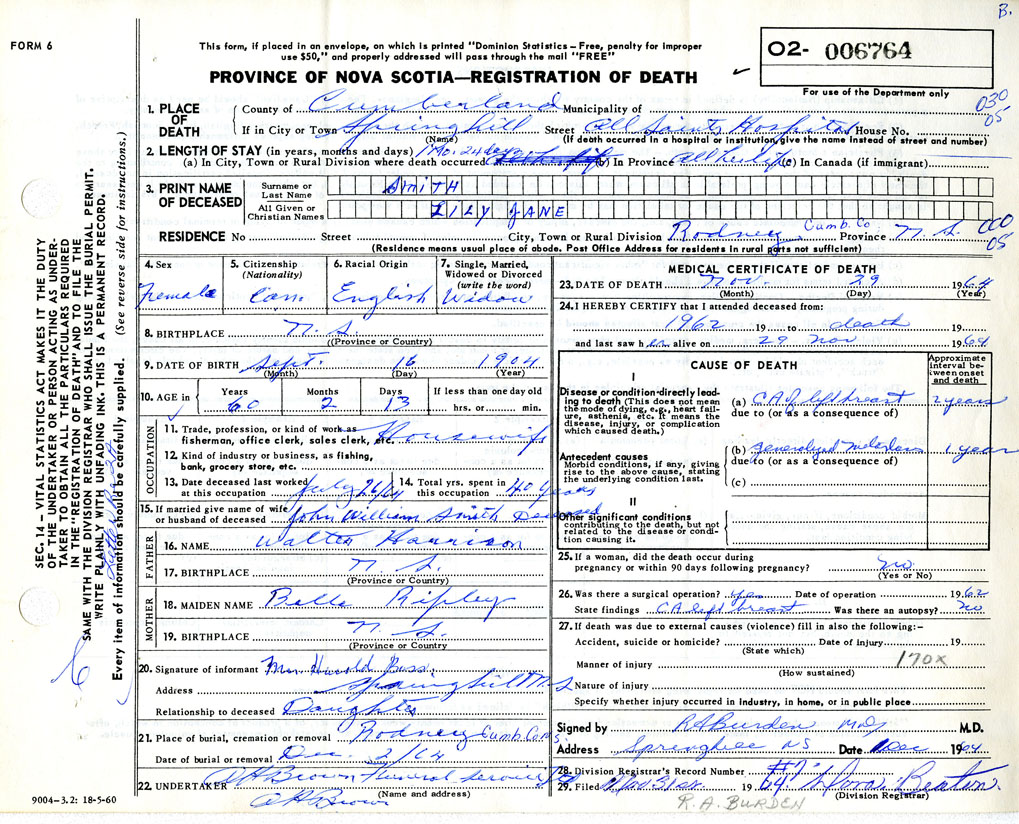 B.
FORM 6
This form, if placed in an envelope, on which is printed "Dominion Statistics – Free, penalty for improper
use $50," and properly addressed will pass through the mail "FREE"
O2- 006764
PROVINCE OF NOVA SCOTIA—REGISTRATION OF DEATH
For use of the Department only
030
05
1. PLACE OF DEATH
County of Cumberland Municipality of
If in City or Town Springhill Street All Saints Hospital House No.
(Name) (If death occurred in a hospital or institution, give the name instead of street and number)
2. LENGTH OF STAY (in years, months and days) 24 days
(a) In City, Town or Rural Division where death occurred (b) In Province all her life (c) In Canada (if immigrant)
3. PRINT NAME OF DECEASED
Surname or Last Name SMITH
All Given or Christian Names LILY JANE
RESIDENCE No Street City, Town or Rural Division Rodney Cumb. Co. Province N.S.
05
(Residence means usual place of abode. Post Office Address for residents in rural parts not sufficient)
SEC. 14 – VITAL STATISTICS ACT MAKES IT THE DUTY
OF THE UNDERTAKER OR PERSON ACTING AS UNDER-
TAKER TO OBTAIN ALL THE PARTICULARS REQUIRED
IN THE "REGISTRATION OF DEATH" AND TO FILE THE
SAME WITH THE DIVISION REGISTRAR WHO SHALL ISSUE THE BURIAL PERMIT.
WRITE PLAINLY WITH UNFADING INK. THIS IS A PERMANENT RECORD.
Every item of information should be carefully supplied. (See reverse side for instructions.)
4. Sex Female
5. Citizenship (Nationality) Can.
6. Racial Origin English
7. Single, Married, Widowed or Divorced (write the word) Widow
8. BIRTHPLACE N.S.
(Province or Country)
9. DATE OF BIRTH Sept. 16 1904
(Month) (Day) (Year)
10. AGE in Years 60 Months 2 Days 13 If less than one day old hrs. or min.
OCCUPATION
11. Trade, profession, or kind of work as
fisherman, office clerk, sales clerk, etc. Housewife
12. Kind of industry or business, as fishing,
bank, grocery store, etc.
13. Date deceased last worked at this occupation July 26/64
14. Total yrs. spent in this occupation 40 years
15. If married give name of wife
or husband of deceased John William Smith Deceased
FATHER
16. NAME Walter Harrison
17. BIRTHPLACE N.S.
(Province or Country)
MOTHER
18. MAIDEN NAME Belle Ripley
19. BIRTHPLACE N.S.
(Province or Country
20. Signature of informant Mrs Harold Boss
Address Springhill N.S
Relationship to deceased Daughter
21. Place of burial, cremation or removal Rodney Cumb. Co N.S
Date of burial or removal Dec. 2/64
22. UNDERTAKER A H Brown Funeral Service
(Name and address)
A H Brown
9004–3.2: 18-5-60
MEDICAL CERTIFICATE OF DEATH
23. DATE OF DEATH Nov. 29 1964
(Month) (Day) (Year)
24. I HEREBY CERTIFY that I attended deceased from:
1962 19 to death 19
and last saw her alive on 29 Nov 1964
CAUSE OF DEATH
Approximate interval between onset and death
I
Disease or condition directly leading to death (This does not mean the mode of dying, e.g., heart failure, asthenia, etc. It means the disease, injury, or complication which caused death.)
(a) CA of left breast 2 years
due to (or as a consequence of)
Antecedent causes
Morbid conditions, if any, giving rise to the above cause, stating the underlying condition last.
(b) generalized metastases 1 year
due to (or as a consequence of)
(c)
II
Other significant conditions
contributing to the death, but not related to the disease or condition causing it.
25. If a woman, did the death occur during
pregnancy or within 90 days following pregnancy? No
(Yes or No)
26. Was there a surgical operation? yes Date of operation 1962
State findings CA left breast Was there an autopsy? no
27. If death was due to external causes (violence) fill in also the following:–
Accident, suicide or homicide? Date of injury 19
(State which)
170X
Manner of injury
(How sustained)
Nature of injury
Specify whether injury occurred in Industry, in home, or in public place
Signed by R A Burden MD M.D.
Address Springhill NS Date Dec 1964
28. Division Registrar's Record Number #7
29. Filed 1964 Beaton
(Division Registrar)
R. A. BURDEN